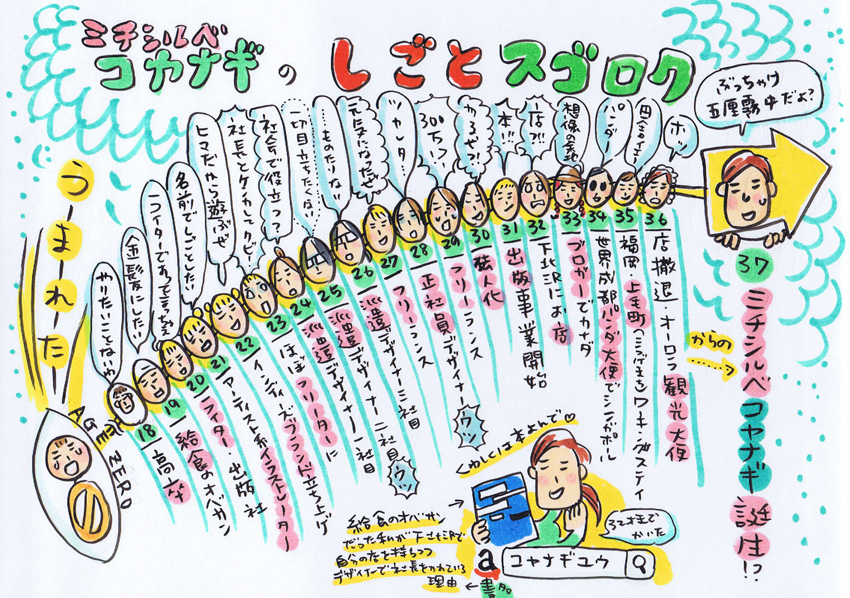 ミチシルベ
コヤナギの しごとスゴロク
ぶっちゃけ
五里霧中だよ?
うーまれーたー
AGE ZERO
やりたいことないわ
金髪にしたい
ライターであってきちゃった
名前でしごとしたい
ヒマだから遊ぶぜ
社長とケンカしてクビ!
社会で役立つ?
一切目立ちたくない
…ものたりない
元気になったぜ
ツカレタ
300万!?
かるぜ?!
本!!!
店?!!
想像の範囲
パンダー
ホッ
18 高卒
19 給食のオバサン
20 ライター・出版社
21 アーティスト系イラストレーター
22 インディーズブランド立ち上げ
23 ほぼフリーターに
24 派遣デザイナー一社目
25 派遣デザイナー二社目 ウツ
26 派遣デザイナー三社目
27 フリーランス
28 正社員デザイナー ウツ
29 フリーランス
30 法人化
31 出版事業開始
32 下北沢にお店
33 ブロガーでカナダ
34 世界成都パンダ大使でシンガポール
35 福岡・上毛町(こうげまち)ワーキングステイ
36 店撤退・オーロラ観光大使
からの
37 ミチシルベコヤナギ誕生!?
くわしくは本よんで♡
32才まで
かいた
給食のオバサン
だった私が下北沢で
自分の店を持ちつつ
デザイナーで社長をかれている
理由
a 書店
コヤナギユウ